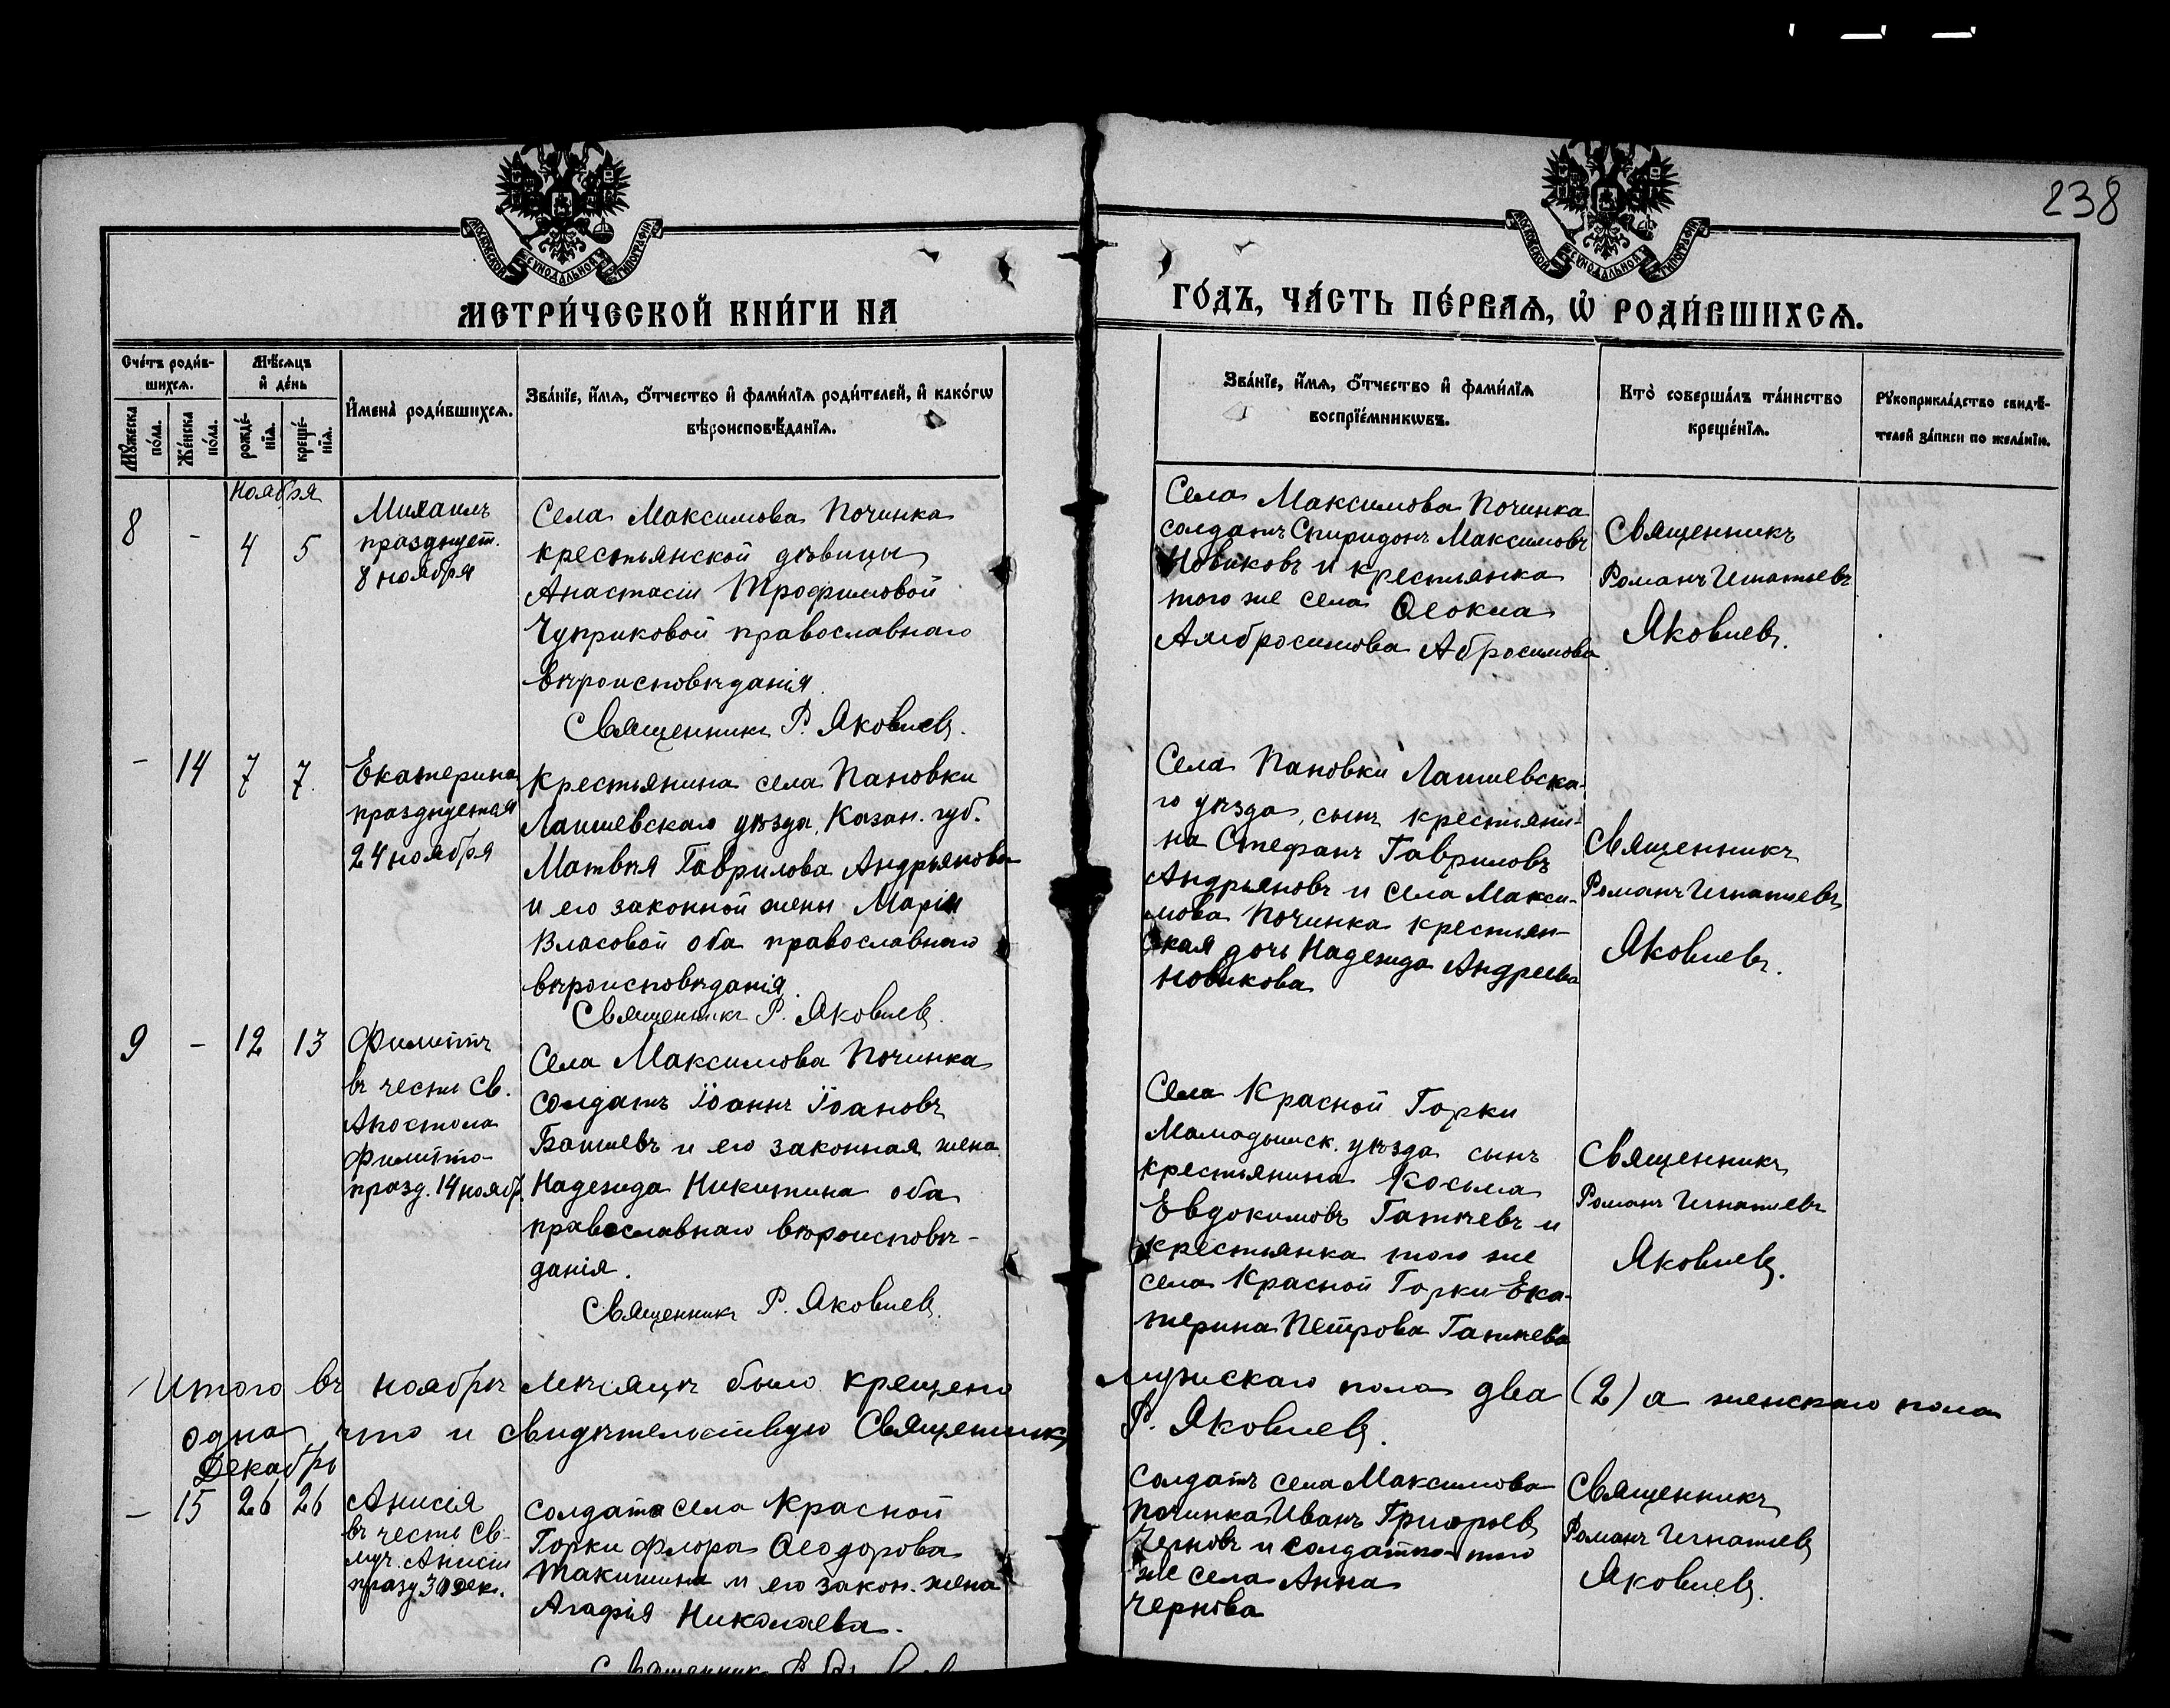 238
МОСКОВСКОЙ СѴНОДАЛЬНОЙ ТИПОГРАФІИ
МОСКОВСКОЙ СѴНОДАЛЬНОЙ ТИПОГРАФІИ
МЕТРИ́ЧЕСКОЙ КНИ́ГИ НА
ГО́ДЪ, ЧА́СТЬ ПЕ́РВАѦ, Ѡ҆ РОДИ́ВШИХСѦ.
Сче́тъ роди́в-
шихсѧ.
Мꙋжеска по́ла.
Же́нска по́ла.
Мѣ́сѧцъ
и҆ де́нь
рожде́-
нїѧ.
креще́-
нїѧ.
И҆мена̀ роди́вшихсѧ.
Зва́нїе, и҆́мѧ, ѻ҆́тчество и҆ фами́лїѧ роди́телей, и҆ како́гѡ
вѣроисповѣ́данїѧ.
Зва́нїе, и҆́мѧ, ѻ҆́тчество и҆ фами́лїѧ
воспрїе́мникѡвъ.
Кто̀ соверша́лъ та́инство
креще́нїѧ.
Рꙋкоприкла́дство свидѣ́-
телей за́писи по жела́нїю.
Ноября
8 - 4 5
Михаилъ
празднует.
8 ноября
Села Максимова Починка
крестьянской дѣвицы
Анастасіи Трофимовой
Чуприковой православнаго
вѣроисповѣданія.
Священникъ Р. Яковлевъ.
Села Максимова Починка
солдатъ Спиридонъ Максимовъ
Новиковъ и крестьянка
того же села Ѳеокла
Амбросимова Абросимова
Священникъ
Романъ Игнатьевъ
Яковлевъ.
- 14 7 7.
Екатерина
празднуемая
24 ноября
Крестьянина села Пановки
Лаишевскаго уѣзда, Казан. губ.
Матвѣя Гаврилова Андрьянова
и его законной жены Маріи
Власовой оба православнаго
вѣроисповѣданія.
Священникъ Р. Яковлевъ.
Села Пановки Лаишевска-
го уѣзда, сынъ крестьяни-
на Стефанъ Гавриловъ
Андрьяновъ и села Макси-
мова Починка крестьян-
ская дочь Надежда Андреева
Новикова
Священникъ
Романъ Игнатьевъ
Яковлевъ.
9 - 12 13
Филиппъ
въ честь Св.
Апостола
Филиппа
празд. 14 ноябр.
Села Максимова Починка
солдатъ Іоаннъ Іоановъ
и его законная жена
Надежда Никитина оба
православнаго вѣроисповѣ-
данія.
Священникъ Р. Яковлевъ.
Села Красной Горки
Мамадышск. уѣзда сынъ
крестьянина Косьма
Евдокимовъ и
крестьянка того же
села Красной Горки Ека-
терина Петрова
Священникъ
Романъ Игнатьевъ
Яковлевъ.
Итого въ ноябрѣ мѣсяцѣ было крещено мужскаго пола два (2) а женскаго пола
одна, что и свидѣтельствую Священникъ Р. Яковлевъ.
Декабрь
- 15 26 26
Анисія
въ честь Св.
муч. Анисіи
празд. 30 дек.
Солдата села Красной
Горки Флора Ѳеодорова
и его закон. жена
Агафія Николаева.
Солдатъ села Максимова
Починка Иванъ Григорьевъ
Черновъ и солдатка того
же села Анна
Чернова
Священникъ
Романъ Игнатьевъ
Яковлевъ.
Священникъ Р.